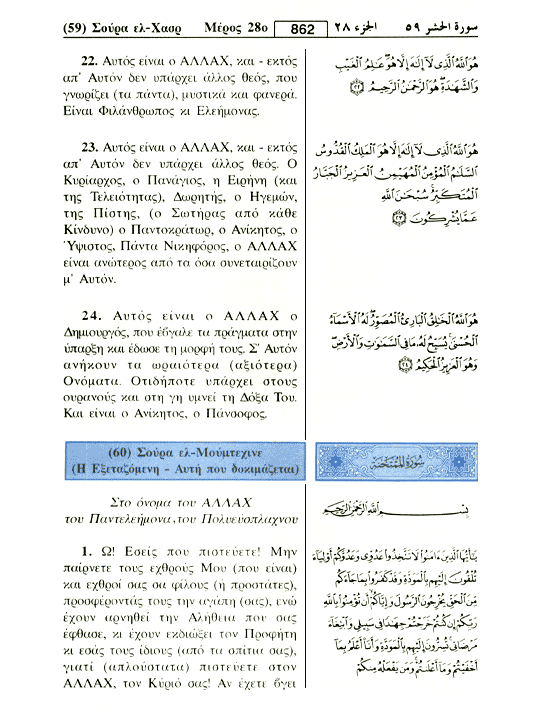 (59) Σούρα ελ-Χασρ Μέρος 28ο 862 الجزء ٢٨ سورة الحشر ٥٩
22. Αυτός είναι ο ΑΛΛΑΧ, και - εκτός
απ' Αυτόν δεν υπάρχει άλλος θεός, που
γνωρίζει (τα πάντα), μυστικά και φανερά.
Είναι Φιλάνθρωπος κι Ελεήμονας.
هُوَ اللَّهُ الَّذِي لَا إِلَٰهَ إِلَّا هُوَ عَالِمُ الْغَيْبِ
وَالشَّهَادَةِ هُوَ الرَّحْمَٰنُ الرَّحِيمُ ٢٢
23. Αυτός είναι ο ΑΛΛΑΧ, και - εκτός
απ' Αυτόν δεν υπάρχει άλλος θεός. Ο
Κυρίαρχος, ο Πανάγιος, η Ειρήνη (και
της Τελειότητας), Δωρητής, ο Ηγεμών,
της Πίστης, (ο Σωτήρας από κάθε
Κίνδυνο) ο Παντοκράτωρ, ο Ανίκητος, ο
Ύψιστος, Πάντα Νικηφόρος, ο ΑΛΛΑΧ
είναι ανώτερος από τα όσα συνεταιρίζουν
μ' Αυτόν.
هُوَ اللَّهُ الَّذِي لَا إِلَٰهَ إِلَّا هُوَ الْمَلِكُ الْقُدُّوسُ
السَّلَامُ الْمُؤْمِنُ الْمُهَيْمِنُ الْعَزِيزُ الْجَبَّارُ
الْمُتَكَبِّرُ سُبْحَانَ اللَّهِ
عَمَّا يُشْرِكُونَ ٢٣
24. Αυτός είναι ο ΑΛΛΑΧ ο
Δημιουργός, που έβγαλε τα πράγματα στην
ύπαρξη και έδωσε τη μορφή τους. Σ' Αυτόν
ανήκουν τα ωραιότερα (αξιότερα)
Ονόματα. Οτιδήποτε υπάρχει στους
ουρανούς και στη γη υμνεί τη Δόξα Του.
Και είναι ο Ανίκητος, ο Πάνσοφος.
هُوَ اللَّهُ الْخَالِقُ الْبَارِئُ الْمُصَوِّرُ لَهُ الْأَسْمَاءُ
الْحُسْنَىٰ يُسَبِّحُ لَهُ مَا فِي السَّمَاوَاتِ وَالْأَرْضِ
وَهُوَ الْعَزِيزُ الْحَكِيمُ ٢٤
(60) Σούρα ελ-Μούμτεχινε
(Η Εξεταζόμενη - Αυτή που δοκιμάζεται)
سورة الممتحنة
Στο όνομα του ΑΛΛΑΧ
του Παντελεήμονα, του Πολυεύσπλαχνου
بِسْمِ اللَّهِ الرَّحْمَٰنِ الرَّحِيمِ
1. Ω! Εσείς που πιστεύετε! Μην
παίρνετε τους εχθρούς Μου (που είναι)
και εχθροί σας σα φίλους (ή προστάτες),
προσφέροντάς τους την αγάπη (σας), ενώ
έχουν αρνηθεί την Αλήθεια που σας
έφθασε, κι έχουν εκδιώξει τον Προφήτη
κι εσάς τους ίδιους (από τα σπίτια σας),
γιατί (απλούστατα) πιστεύετε στον
ΑΛΛΑΧ, τον Κύριό σας! Αν έχετε βγει
يَا أَيُّهَا الَّذِينَ آمَنُوا لَا تَتَّخِذُوا عَدُوِّي وَعَدُوَّكُمْ أَوْلِيَاءَ
تُلْقُونَ إِلَيْهِم بِالْمَوَدَّةِ وَقَدْ كَفَرُوا بِمَا جَاءَكُم
مِّنَ الْحَقِّ يُخْرِجُونَ الرَّسُولَ وَإِيَّاكُمْ أَن تُؤْمِنُوا بِاللَّهِ
رَبِّكُمْ إِن كُنتُمْ خَرَجْتُمْ جِهَادًا فِي سَبِيلِي وَابْتِغَاءَ
مَرْضَاتِي تُسِرُّونَ إِلَيْهِم بِالْمَوَدَّةِ وَأَنَا أَعْلَمُ بِمَا
أَخْفَيْتُمْ وَمَا أَعْلَنتُمْ وَمَن يَفْعَلْهُ مِنكُمْ